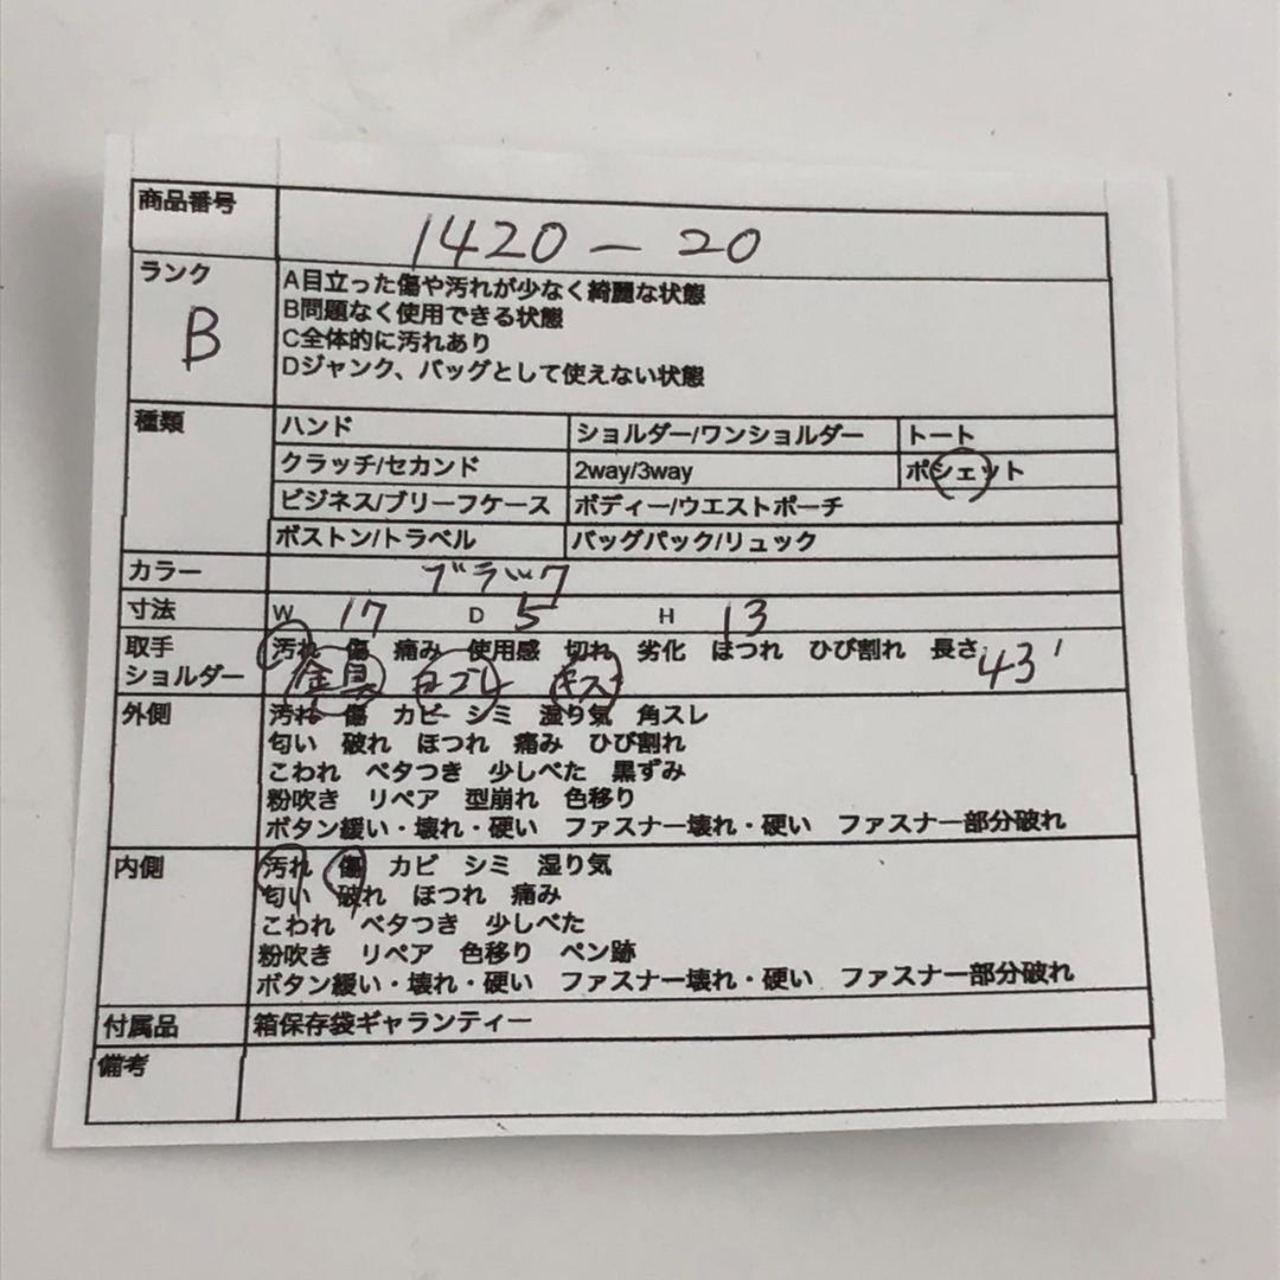 商品番号 1420-20
ランク B
A目立った傷や汚れが少なく綺麗な状態
B問題なく使用できる状態
C全体的に汚れあり
Dジャンク、バッグとして使えない状態
種類 ハンド ショルダー/ワンショルダー トート
クラッチ/セカンド 2way/3way ポシェット
ビジネス/ブリーフケース ボディー/ウエストポーチ
ボストン/トラベル バッグパック/リュック
カラー ブラック
寸法 W 17 D 5 H 13
取手 汚れ 傷 痛み 使用感 切れ 劣化 ほつれ ひび割れ 長さ 43
ショルダー 金具 キズ
外側 汚れ 傷 カビ シミ 湿り気 角スレ
匂い 破れ ほつれ 痛み ひび割れ
こわれ ベタつき 少しべた 黒ずみ
粉吹き リペア 型崩れ 色移り
ボタン緩い・壊れ・硬い ファスナー壊れ・硬い ファスナー部分破れ
内側 汚れ 傷 カビ シミ 湿り気
匂い 破れ ほつれ 痛み
こわれ ベタつき 少しべた
粉吹き リペア 色移り ペン跡
ボタン緩い・壊れ・硬い ファスナー壊れ・硬い ファスナー部分破れ
付属品 箱保存袋ギャランティー
備考